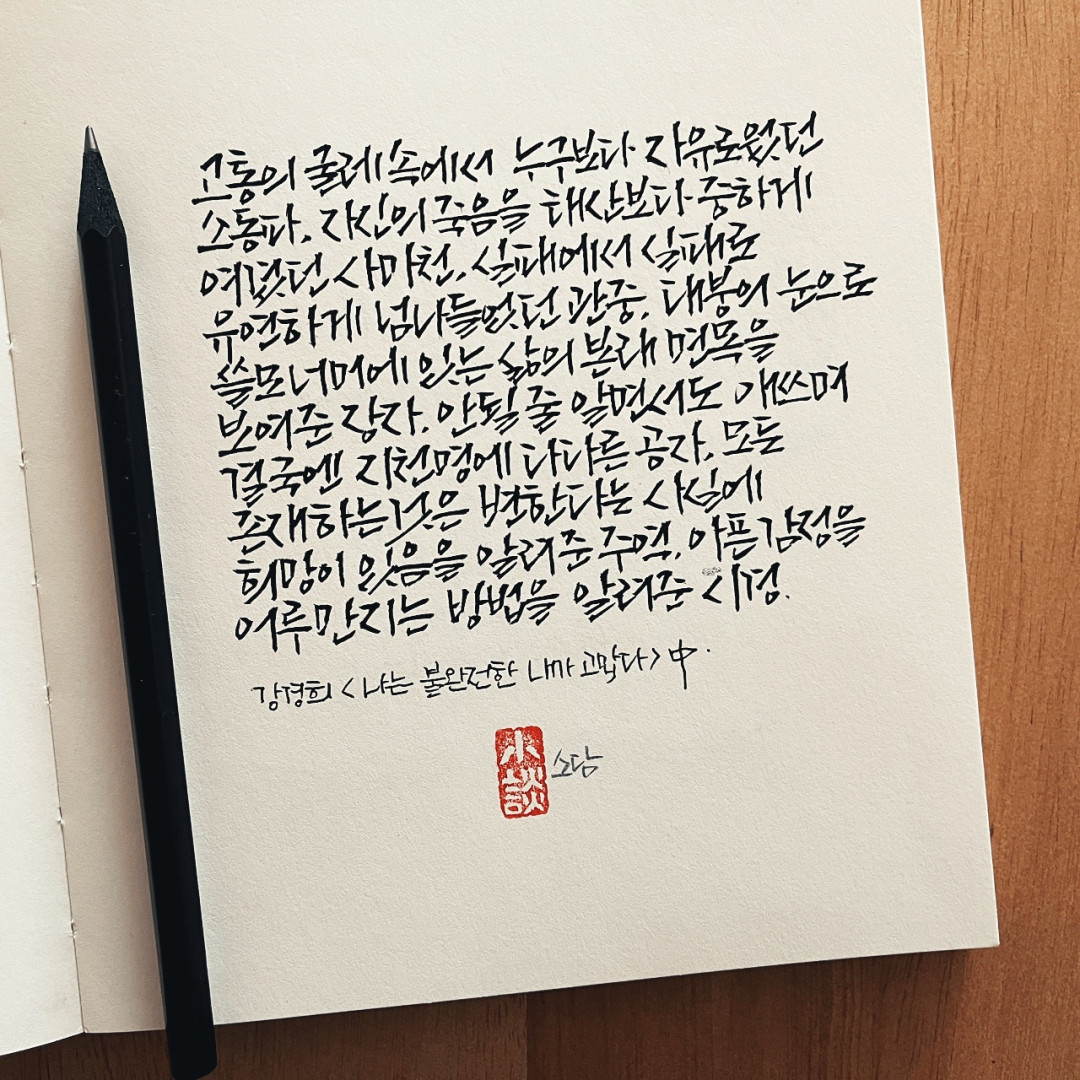 고통의 굴레 속에서 누구보다 자유로웠던
소동파. 자신의 죽음을 태산보다 중하게
여겼던 사마천. 실패에서 실패로
유연하게 넘나들었던 관중. 대붕의 눈으로
쓸모 너머에 있는 삶의 본래 면목을
보여준 장자. 안될 줄 알면서도 애쓰며
결국엔 지천명에 다다른 공자. 모든
존재하는 것은 변한다는 사실에
희망이 있음을 알려준 주역. 아픈 감정을
어루만지는 방법을 알려준 시경.
강경희 <나는 불완전한 내가 고맙다> 中.
小談
소담